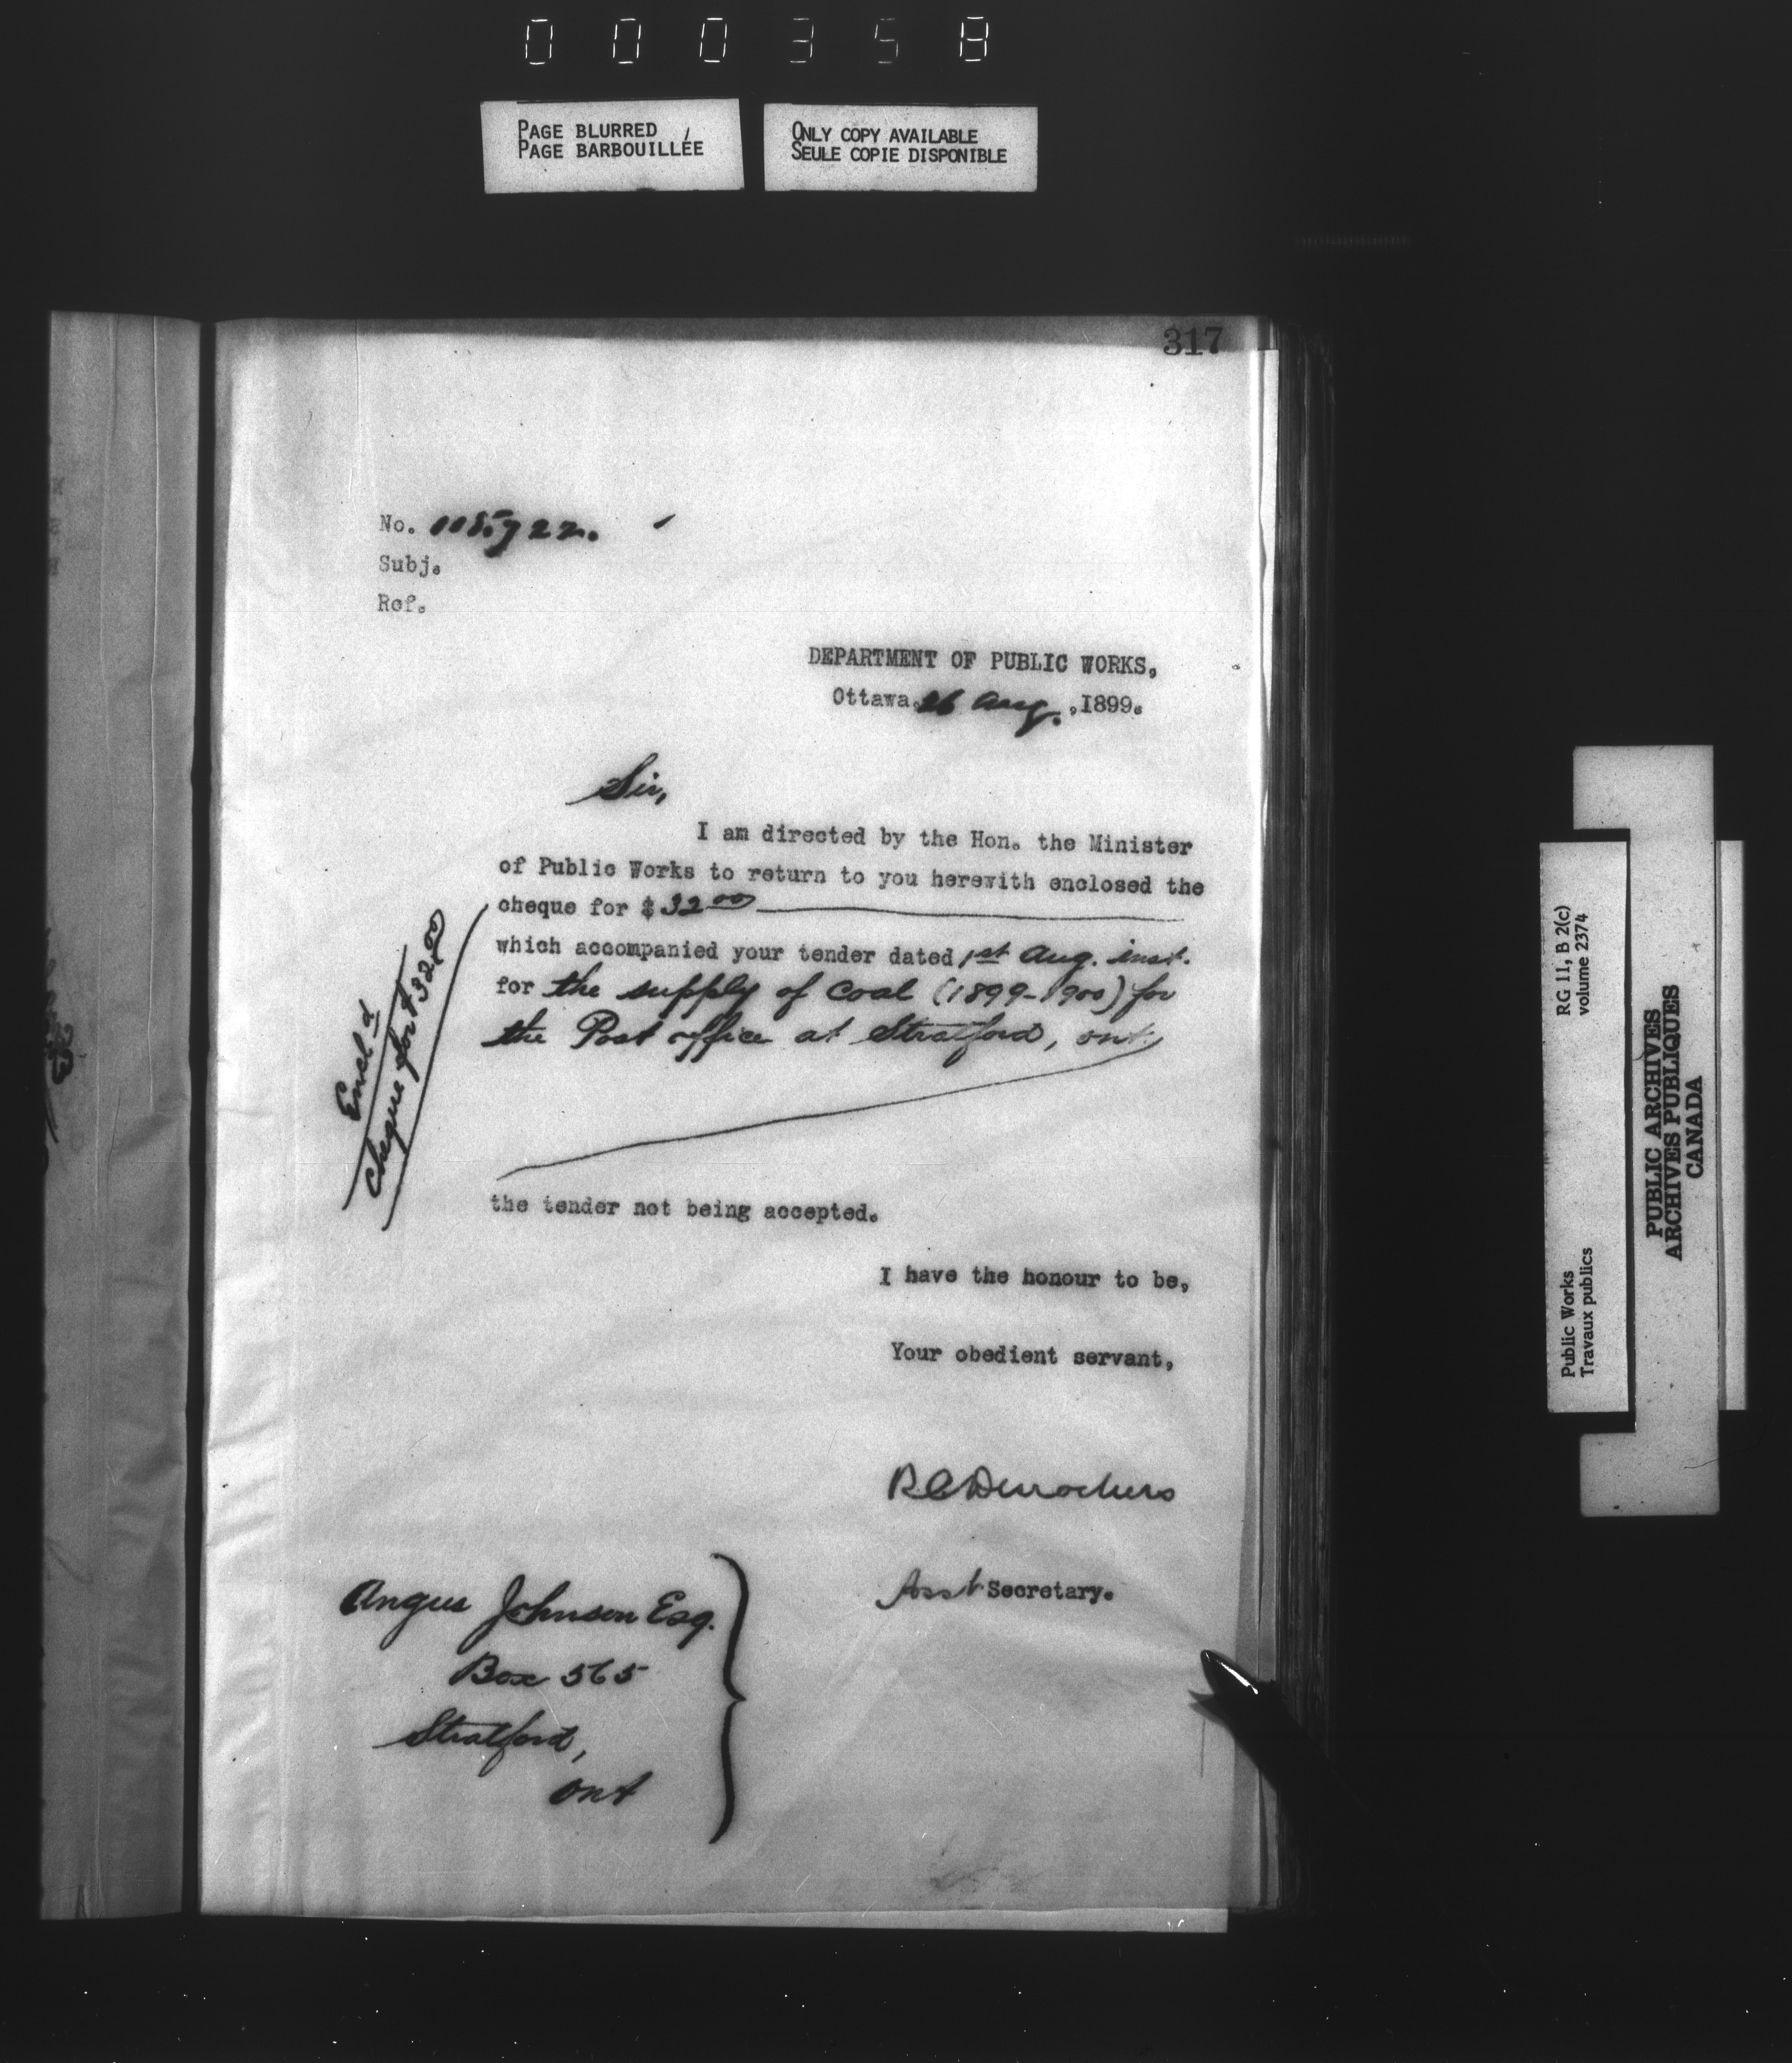 000358
PAGE BLURRED
PAGE BARBOUILLÉE
ONLY COPY AVAILABLE
SEULE COPIE DISPONIBLE
317
No. 115722.
Subj.
Ref.
DEPARTMENT OF PUBLIC WORKS,
Ottawa, 26 Aug. ,1899.
Sir,
I am directed by the Hon. the Minister
of Public Works to return to you herewith enclosed the
cheque for $ 32 00
which accompanied your tender dated 1st Aug. inst.
for the supply of coal (1899-1900) for
the Post office at Stratford, Ont.
Encl d
Cheque for $32.00
the tender not being accepted.
I have the honour to be,
Your obedient servant,
R C Desrochers
Asst Secretary.
Angus Johnson Esq.
Box 565
Stratford,
Ont
RG 11, B 2(c)
volume 2374
Public Works
Travaux publics
PUBLIC ARCHIVES
ARCHIVES PUBLIQUES
CANADA